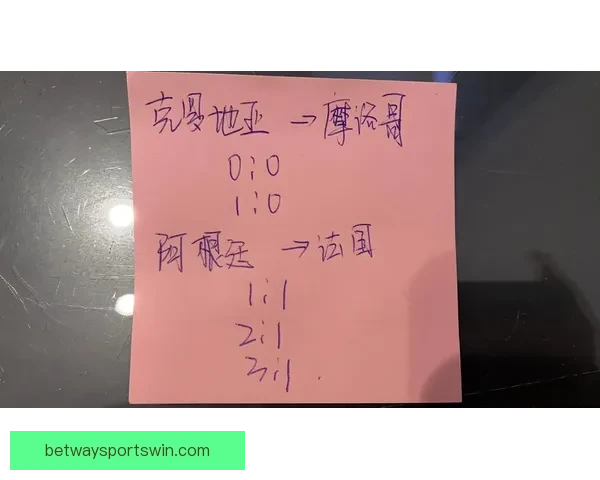 克罗地亚 → 摩洛哥
0:0
1:0
阿根廷 → 法国
1:1
2:1
3:1.
betwaysportswin.com